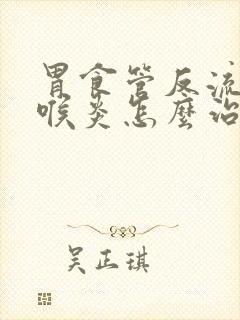 胃食管反流
喉炎怎麼治
吴正琪